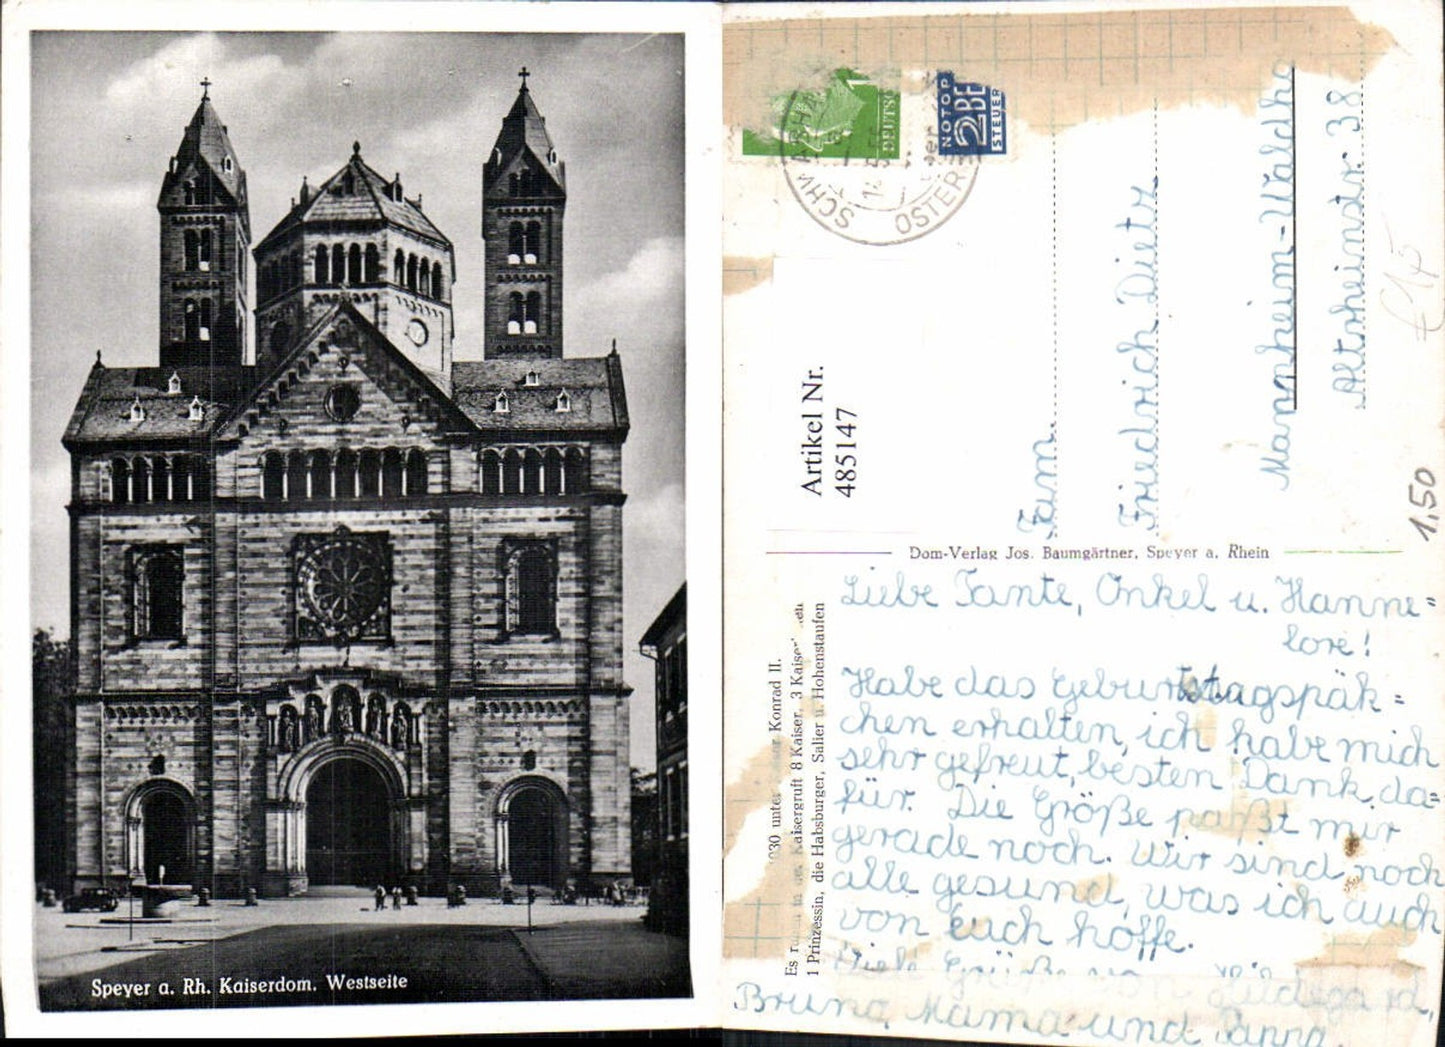 Speyer a. Rh. Kaiserdom. Westseite
NOTOP
2 BE
STEUER
DEUTSC
OSTER
Artikel Nr.
485147
Fam.
Friedrich Dietz
Mannheim-Waldho
Altrheinstr. 38
1,50
Dom-Verlag Jos. Baumgärtner, Speyer a. Rhein
030 unter Konrad II.
Es in Kaisergruft 8 Kaiser, 3 Kaiser
1 Prinzessin, die Habsburger, Salier u. Hohenstaufen
Liebe Tante, Onkel u. Hanne=
lore!
Habe das Geburtstagspäk=
chen erhalten, ich habe mich
sehr gefreut, besten Dank da=
für. Die Größe paßt mir
gerade noch. Wir sind noch
alle gesund, was ich auch
von Euch hoffe.
Viele Grüße von Hildegard,
Bruno, Mama und Pappa.